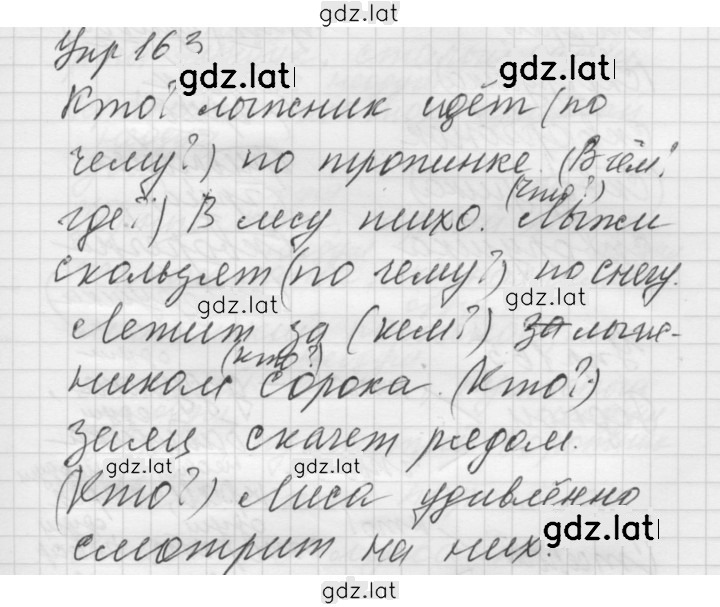 gdz.lat
Упр 163
gdz.lat gdz.lat
Кто? лыжник идёт (по
чему?) по тропинке. (В чём?
(что?)
где?) В лесу тихо. Лыжи
скользят (по чему?) по снегу.
gdz.lat gdz.lat
Летит за (кем?) за лыж-
(кто?)
ником сорока. (Кто?)
заяц скачет рядом.
gdz.lat gdz.lat
(Кто?) Лиса удивлённо
gdz.lat
смотрит на них.
gdz.lat